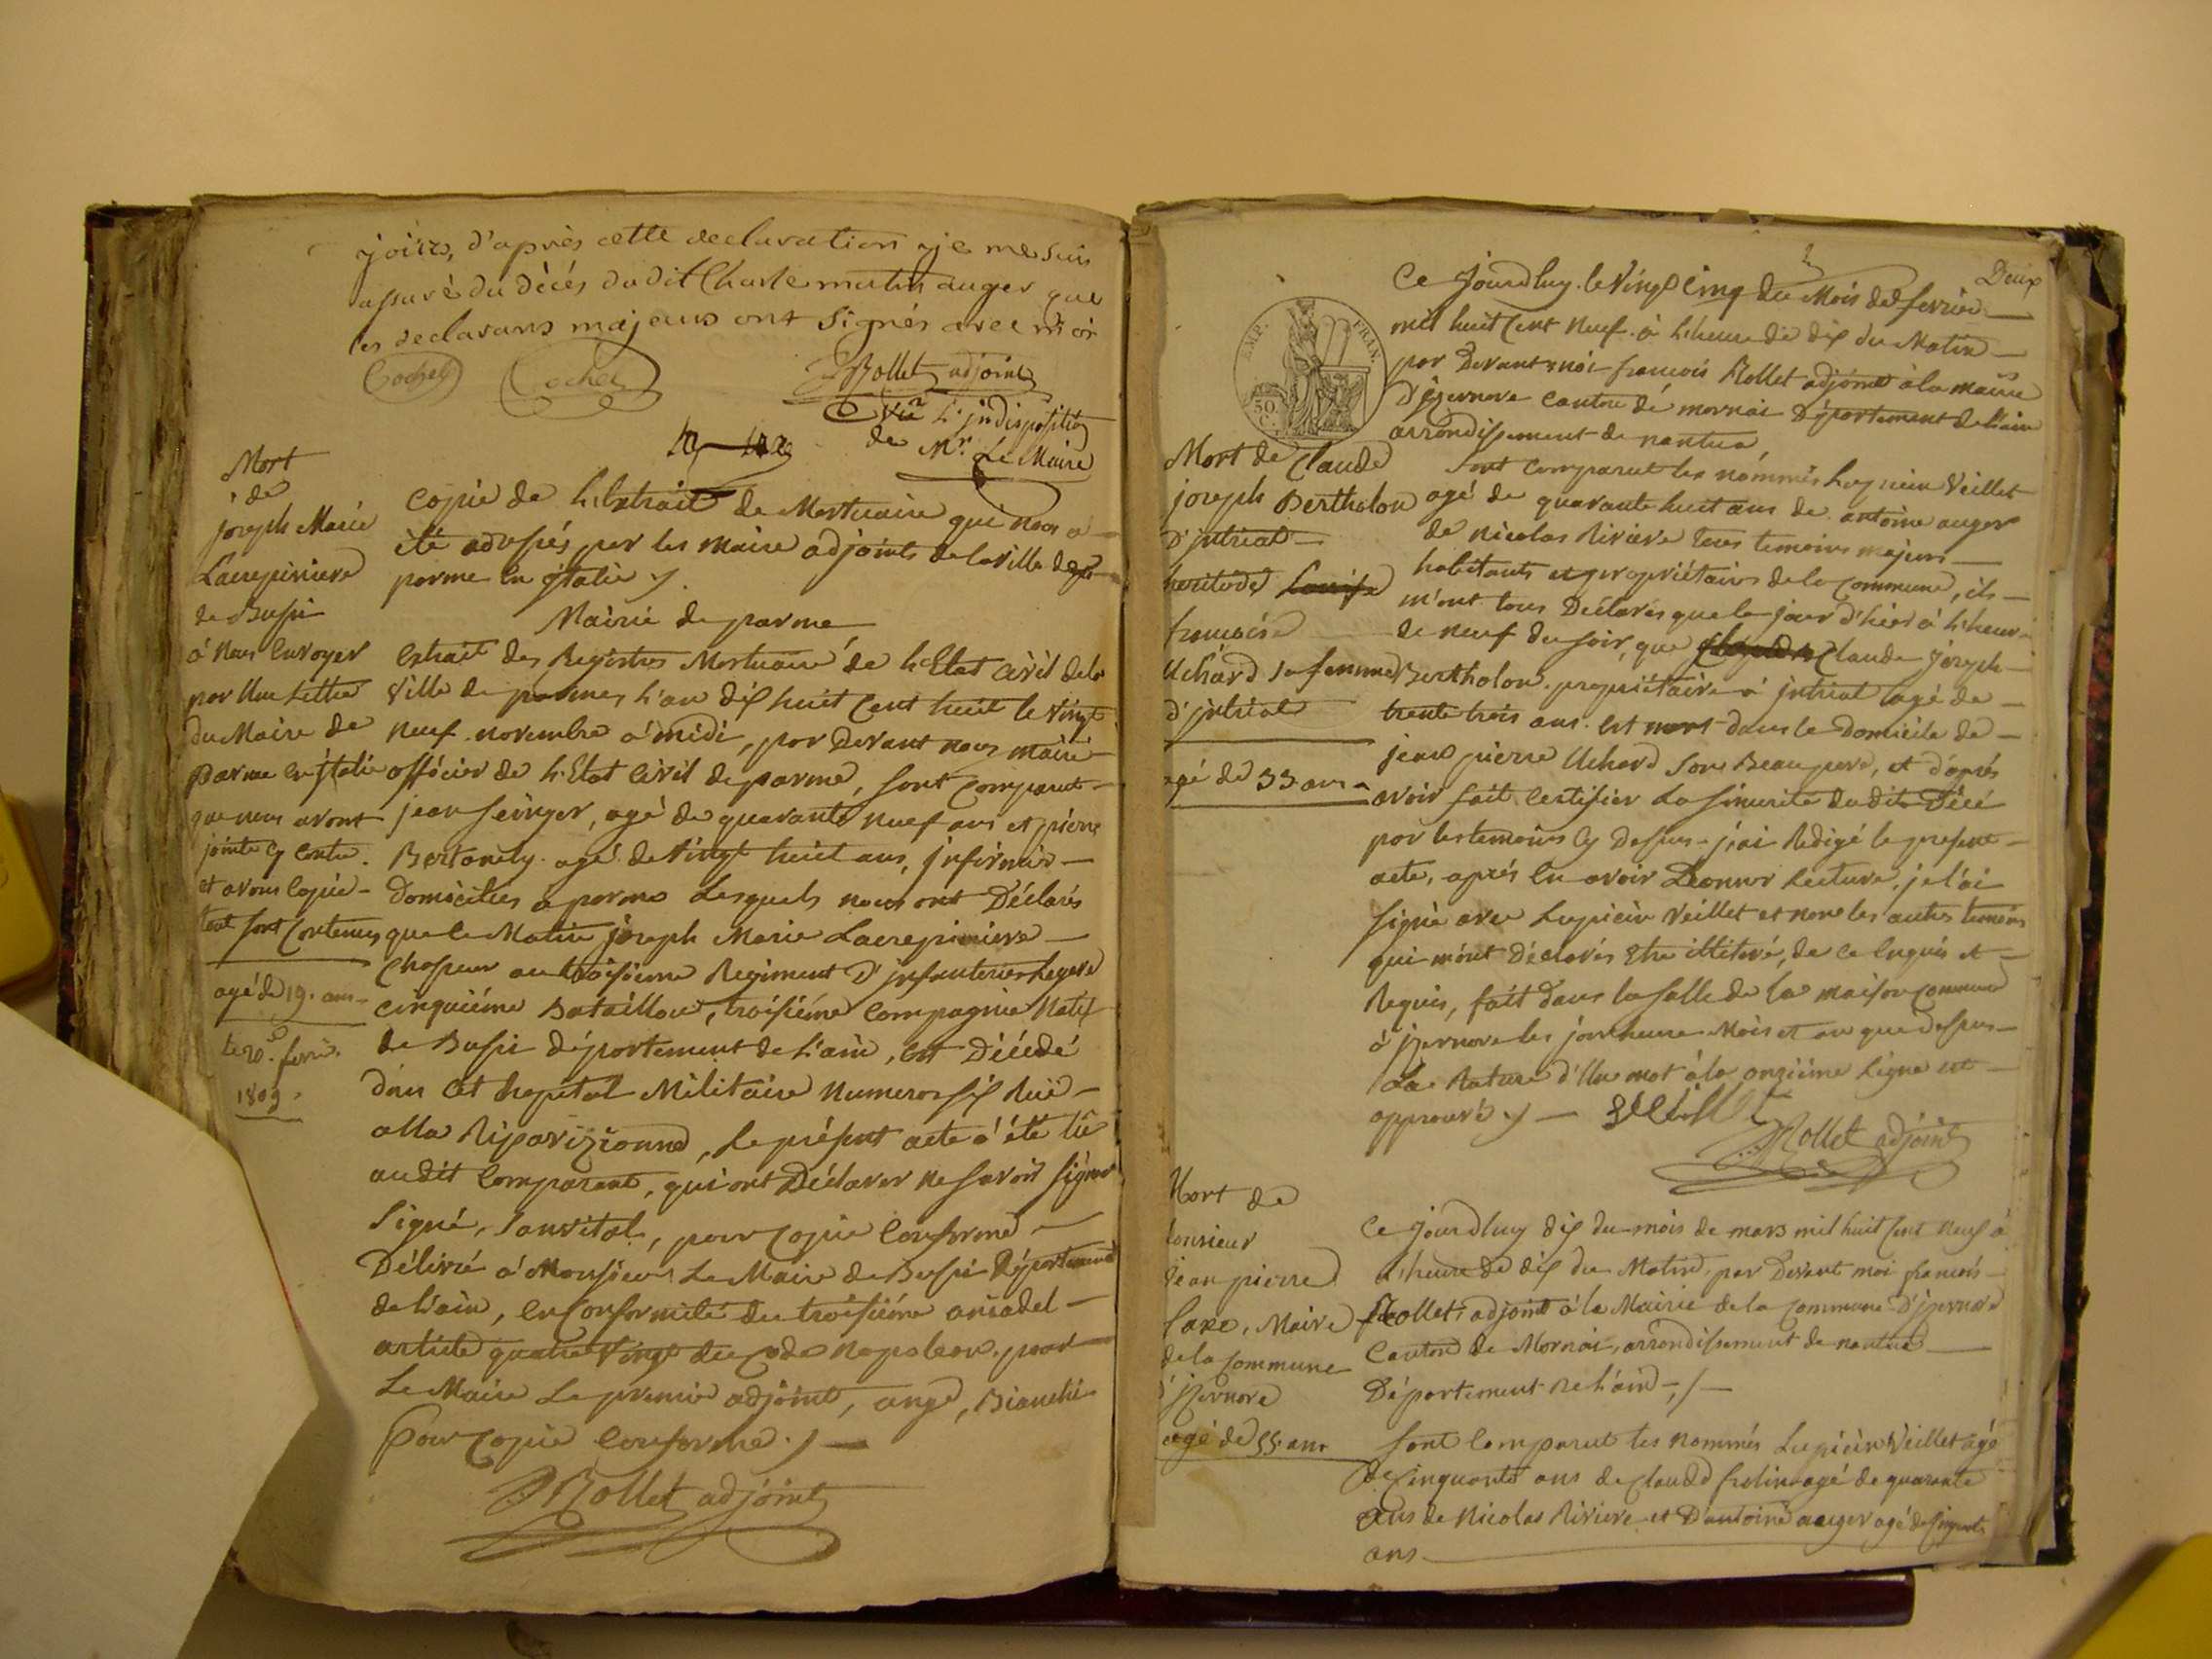 joirs, d'après cette declaration je me suis
assuré du décés du dit Charle auger que
les declarans majeurs ont signés avec moi
Cochet Cochet Rollet adjoint
vû l'jndisposition
de Mr. Le Maire
Mort
de
joseph Marie
Lacrepiniere
de Bussi
à nous Envoyer
par Une Lettre
du Maire de
parme En jtalie
que nous avont
jointe cy contre.
et avons Copié
tout sont Contenus
agé de 19. ans
Le 20. fevrie.
1809.
Copie de L'Extrait de Mortuaire qui nous a
été adressés par les Maire adjoints de la ville de
parme En jtalie ./.
Mairie de parme
Extrait des Registres Mortuaire de L'Etat civil dela
Ville de parmes, L'an dix huit Cent huit le Vingt
neuf novembre à midi, par Devant nous maire
officier de L'Etat Civil de parme, sont Comparut
jean seinger, agé de quarante neuf ans et pierre
Bertonely agé de Vingt huit ans, jnfirmier
domiciliés a parme Lesquels nous ont Déclarés
que le Matin joseph Marie Lacrepiniere
Chasseur au troisieme Regiment D'jnfanterie Legere
cinquiéme Bataillon, troisiéme Compagnie Natif
de Bussi département de L'ain, Est Décédé
dans Cet hopital Militaire numeros six Ruë
alla Riparizionna, Le présent acte à été lû
audit Comparant, qui ont Déclarer ne savoir signer
Signé, Sanvital, pour Copie Conforme
Délivré à Monsieur Le Maire de Bussi Département
de L'ain, En Conformité du troisiéme del
article quatre Vingt du Code Napoleon. pour
Le Maire Le premier adjoint, ange, Bianchi
Pour Copie Conforme ./.
Rollet adjoint
Deux
EMP. FRAN.
50
Mort de Claude
joseph Berthelon
D'jntriat
Louise
francoise
Uchard sa femme
d'jntriat
agé de 33 ans
Ce jourdhuy le Vingt Cinq du Mois de fevrier
mil huit Cent neuf à L'heure de dix du Matin
par Devant moi francois Rollet adjoint à la mairie
D'jzernore Canton de mornai Département de L'ain
arrondissement de nantua
sont Comparut les nommés Lupicien Veillet
agé de quarante huit ans de antoine auger
de nicolas Riviere tous temoins majeurs
habitants et propriétaires de la Commune, ils
m'ont tous Déclarés que le jour d'hier à L'heure
de neuf du soir, que Claude joseph
Bertholon propriétaire à jntriat agé de
trente trois ans est mort dans le Domicile de
jean pierre Uchard son Beau pere, et d'aprés
avoir fait Certifier La sincerité du dit Décé
par les temoins Cy Dessus j'ai Redigé le present
acte, aprés En avoir Donner Lecture, je l'ai
signé avec Lupicien Veillet et non les autres temoins
qui m'ont Déclarés Etre illiteré, de ce Enquis et
Requis, fait dans la salle de la maison Commune
à jzernore les jour mois et an que dessus
La Rature d'Un mot à la onziéme Ligne est
approuvé ./. Rollet adjoint
Mort de
Monsieur
Jean pierre
, Maire
de la Commune
d'jzernore
agé de 55. ans
Ce jourdhuy dix du mois de mars mil huit Cent neuf à
L'heure de dix du Matin, par Devant moi francois
Rollet, adjoint à la Mairie de la Commune D'jzernore
Canton de Mornai, arrondissement de nantua
Département de L'ain ./.
sont Comparut les nommés Lupicien Veillet agé
de Cinquante ans de Claude agé de quarante
ans de Nicolas Riviere et D'antoine auger agé de
ans